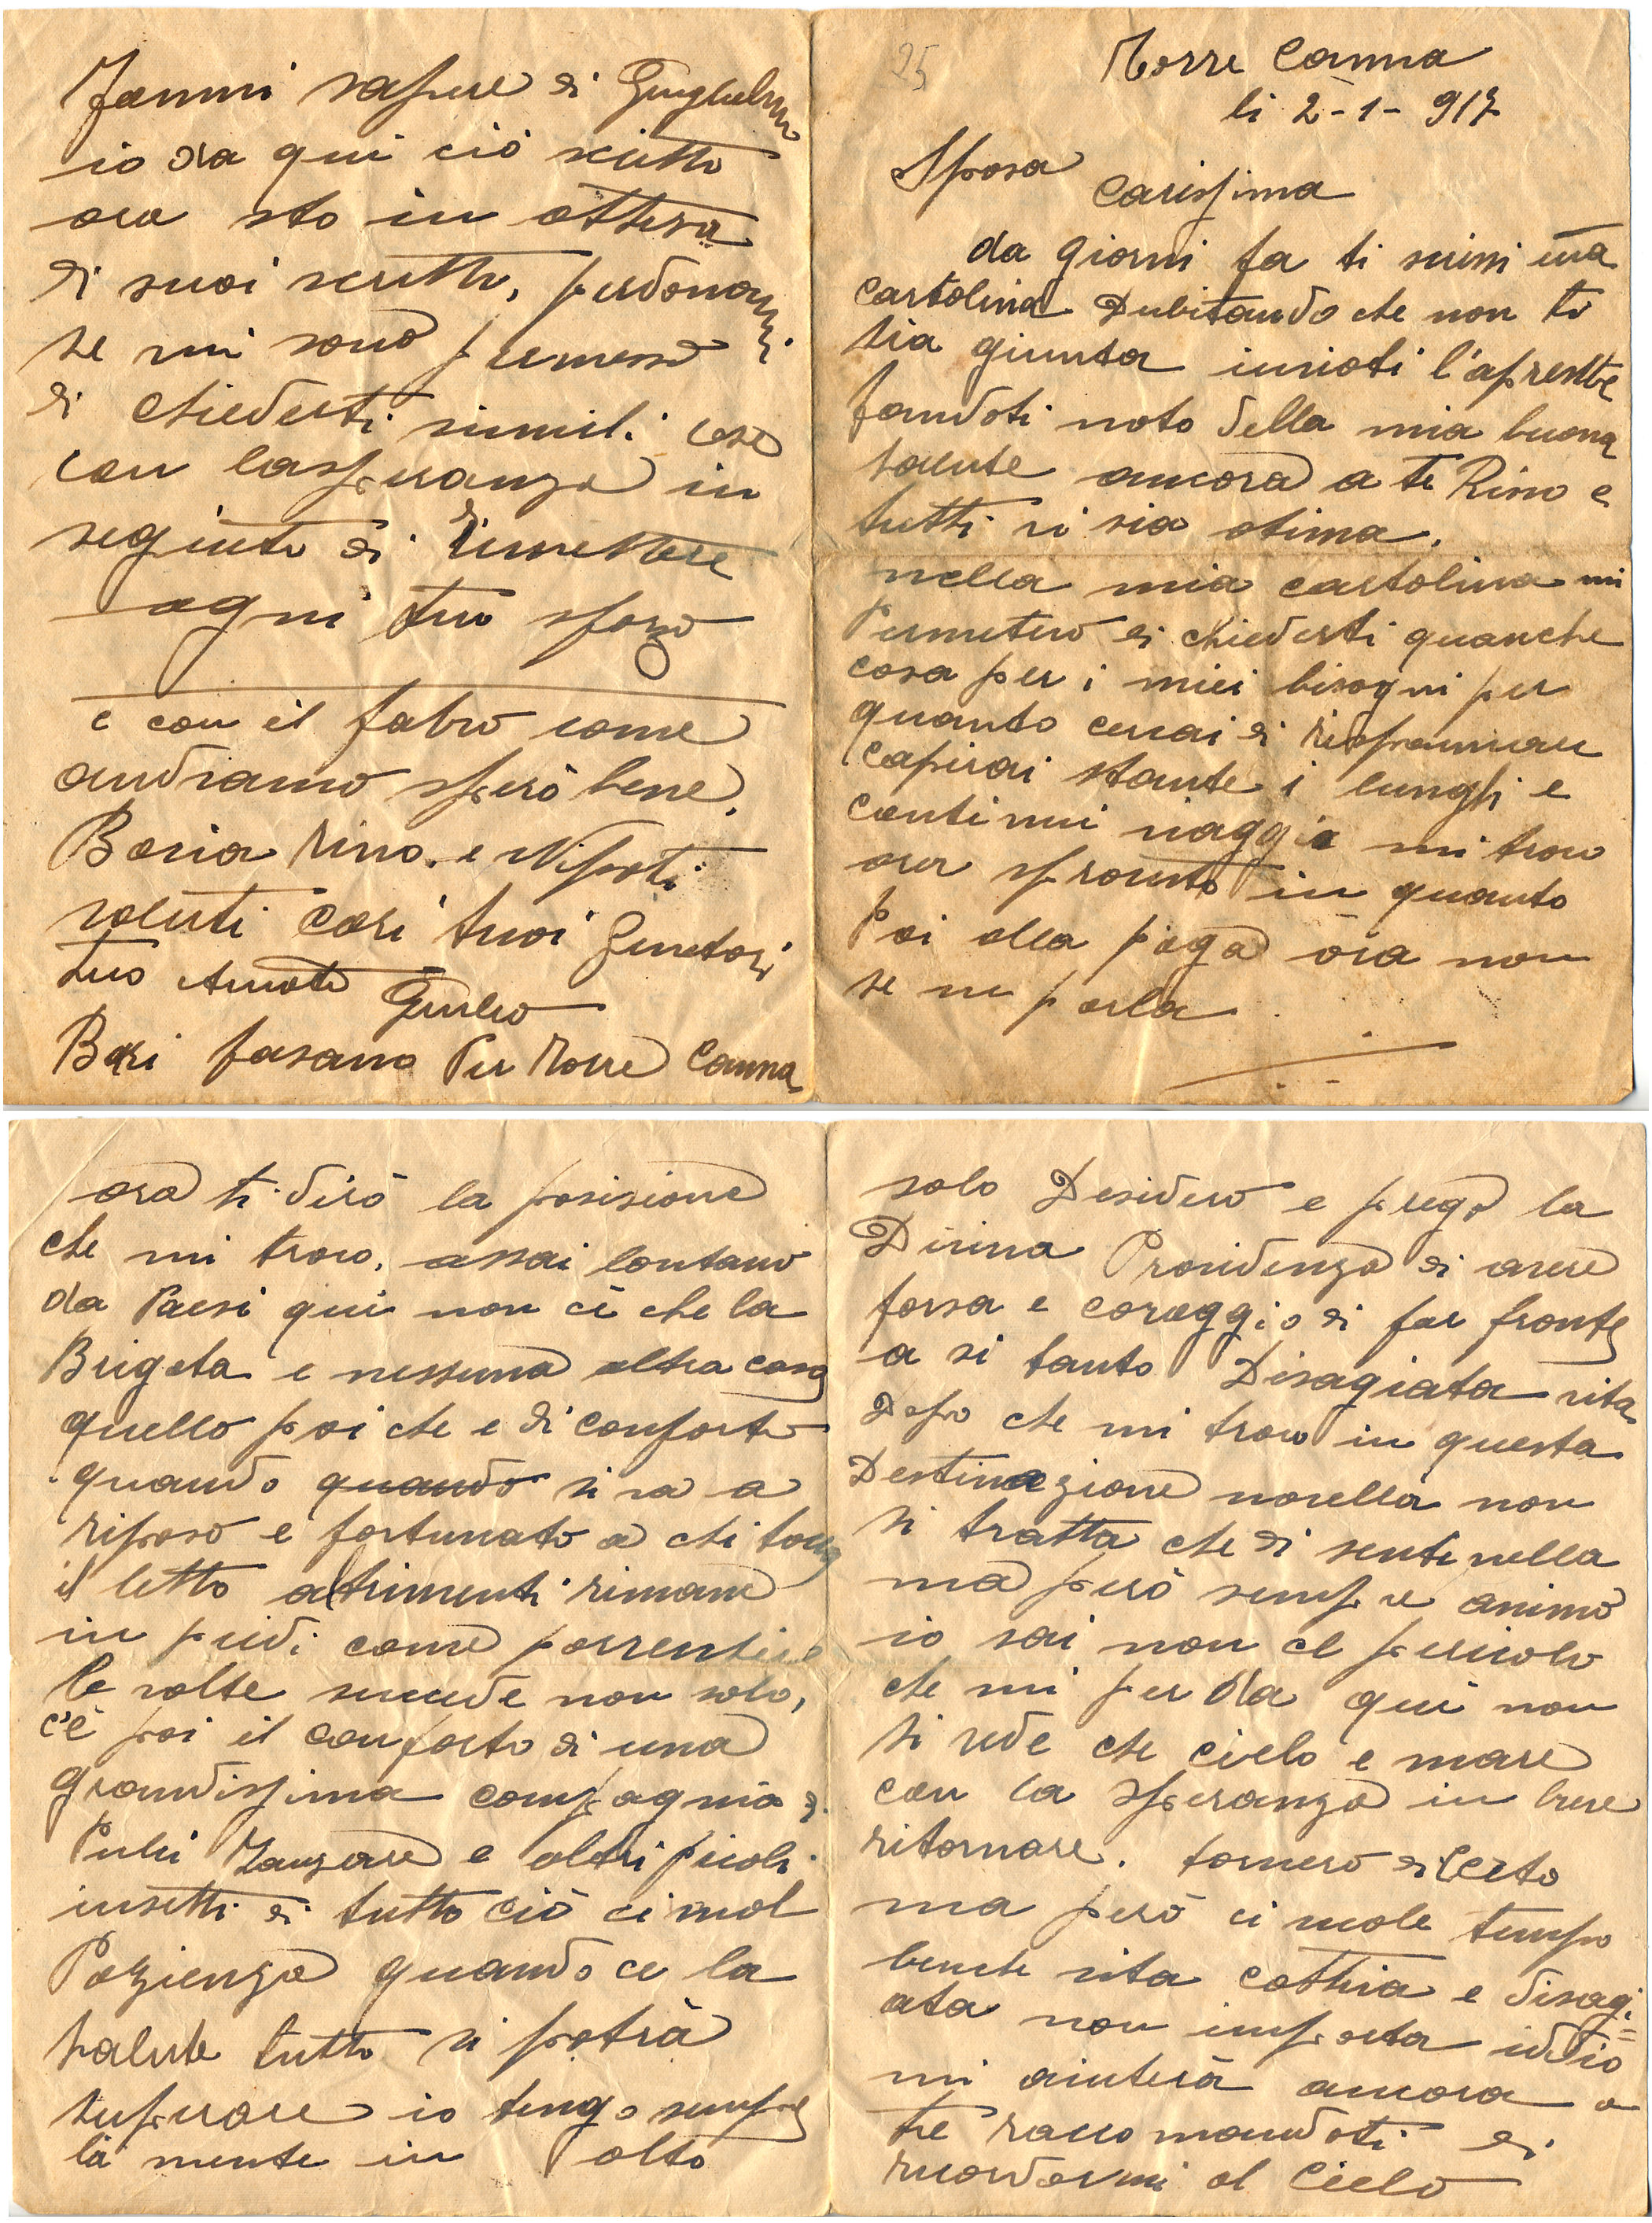 25
Torre Canna
li 2-1-917
Sposa
Carissima
da giorni fa ti scrissi una
cartolina Dubitando che non ti
sia giunta invioti l'apresente
fandoti noto della mia buona
salute ancora a te Rino e
tutti vi sia otima.
nella mia cartolina mi
Permetevo di chiederti qualche
cosa per i miei bisogni per
quanto cercai di risparmiare
capirai stante i lunghi e
continui viaggi mi trovo
ora sprovisto in quanto
Poi alla paga ora non
se ne parla
ora ti dirò la posisione
che mi trovo, assai lontano
da Paesi qui non cè che la
Brigata e nessuna altra casa
quello poi che e di conforto
quando quando si va a
riposo e fortunato a chi tocca
il letto altrimenti rimane
in piedi come
le volte succede non solo,
c'è poi il conforto di una
grandissima compagnia di
Pulci Zanzare e altri picoli
insetti di tutto ciò ci vuol
Pazienza quando ce la
salute tutto si potrà
superare io tengo sempre
la mente in alto
solo Desidero e prego la
Divina Providenza di avere
forsa e coraggio di far fronte
a si tanto Disagiata vita
Dopo che mi trovo in questa
Destinazione novella non
si tratta che di sentinella
ma però sempre animo
io sai non ce pericolo
che mi perda qui non
si vede che cielo e mare
con la speranza in breve
ritornare. tornerò di certo
ma però ci vuole tempo
benche vita cattiva e disagi=
ata non importa iddio
mi aiuterà ancora a
te raccomandoti di
ricordarmi al Cielo
Fammi sapere di Guglielmo
io da qui ciò scritto
ora sto in attesa
di suoi scritti, perdonami
se mi sono permesso
di chiederti simili cose
con lasperanza in
seguito di rimettere
ogni tuo sforzo
e con il fabro come
andiamo sperò bene.
Bacia Rino e Nipoti
saluti cari tuoi Genitori
tuo Amato Giulio
Bari fasano Per Torre Canna